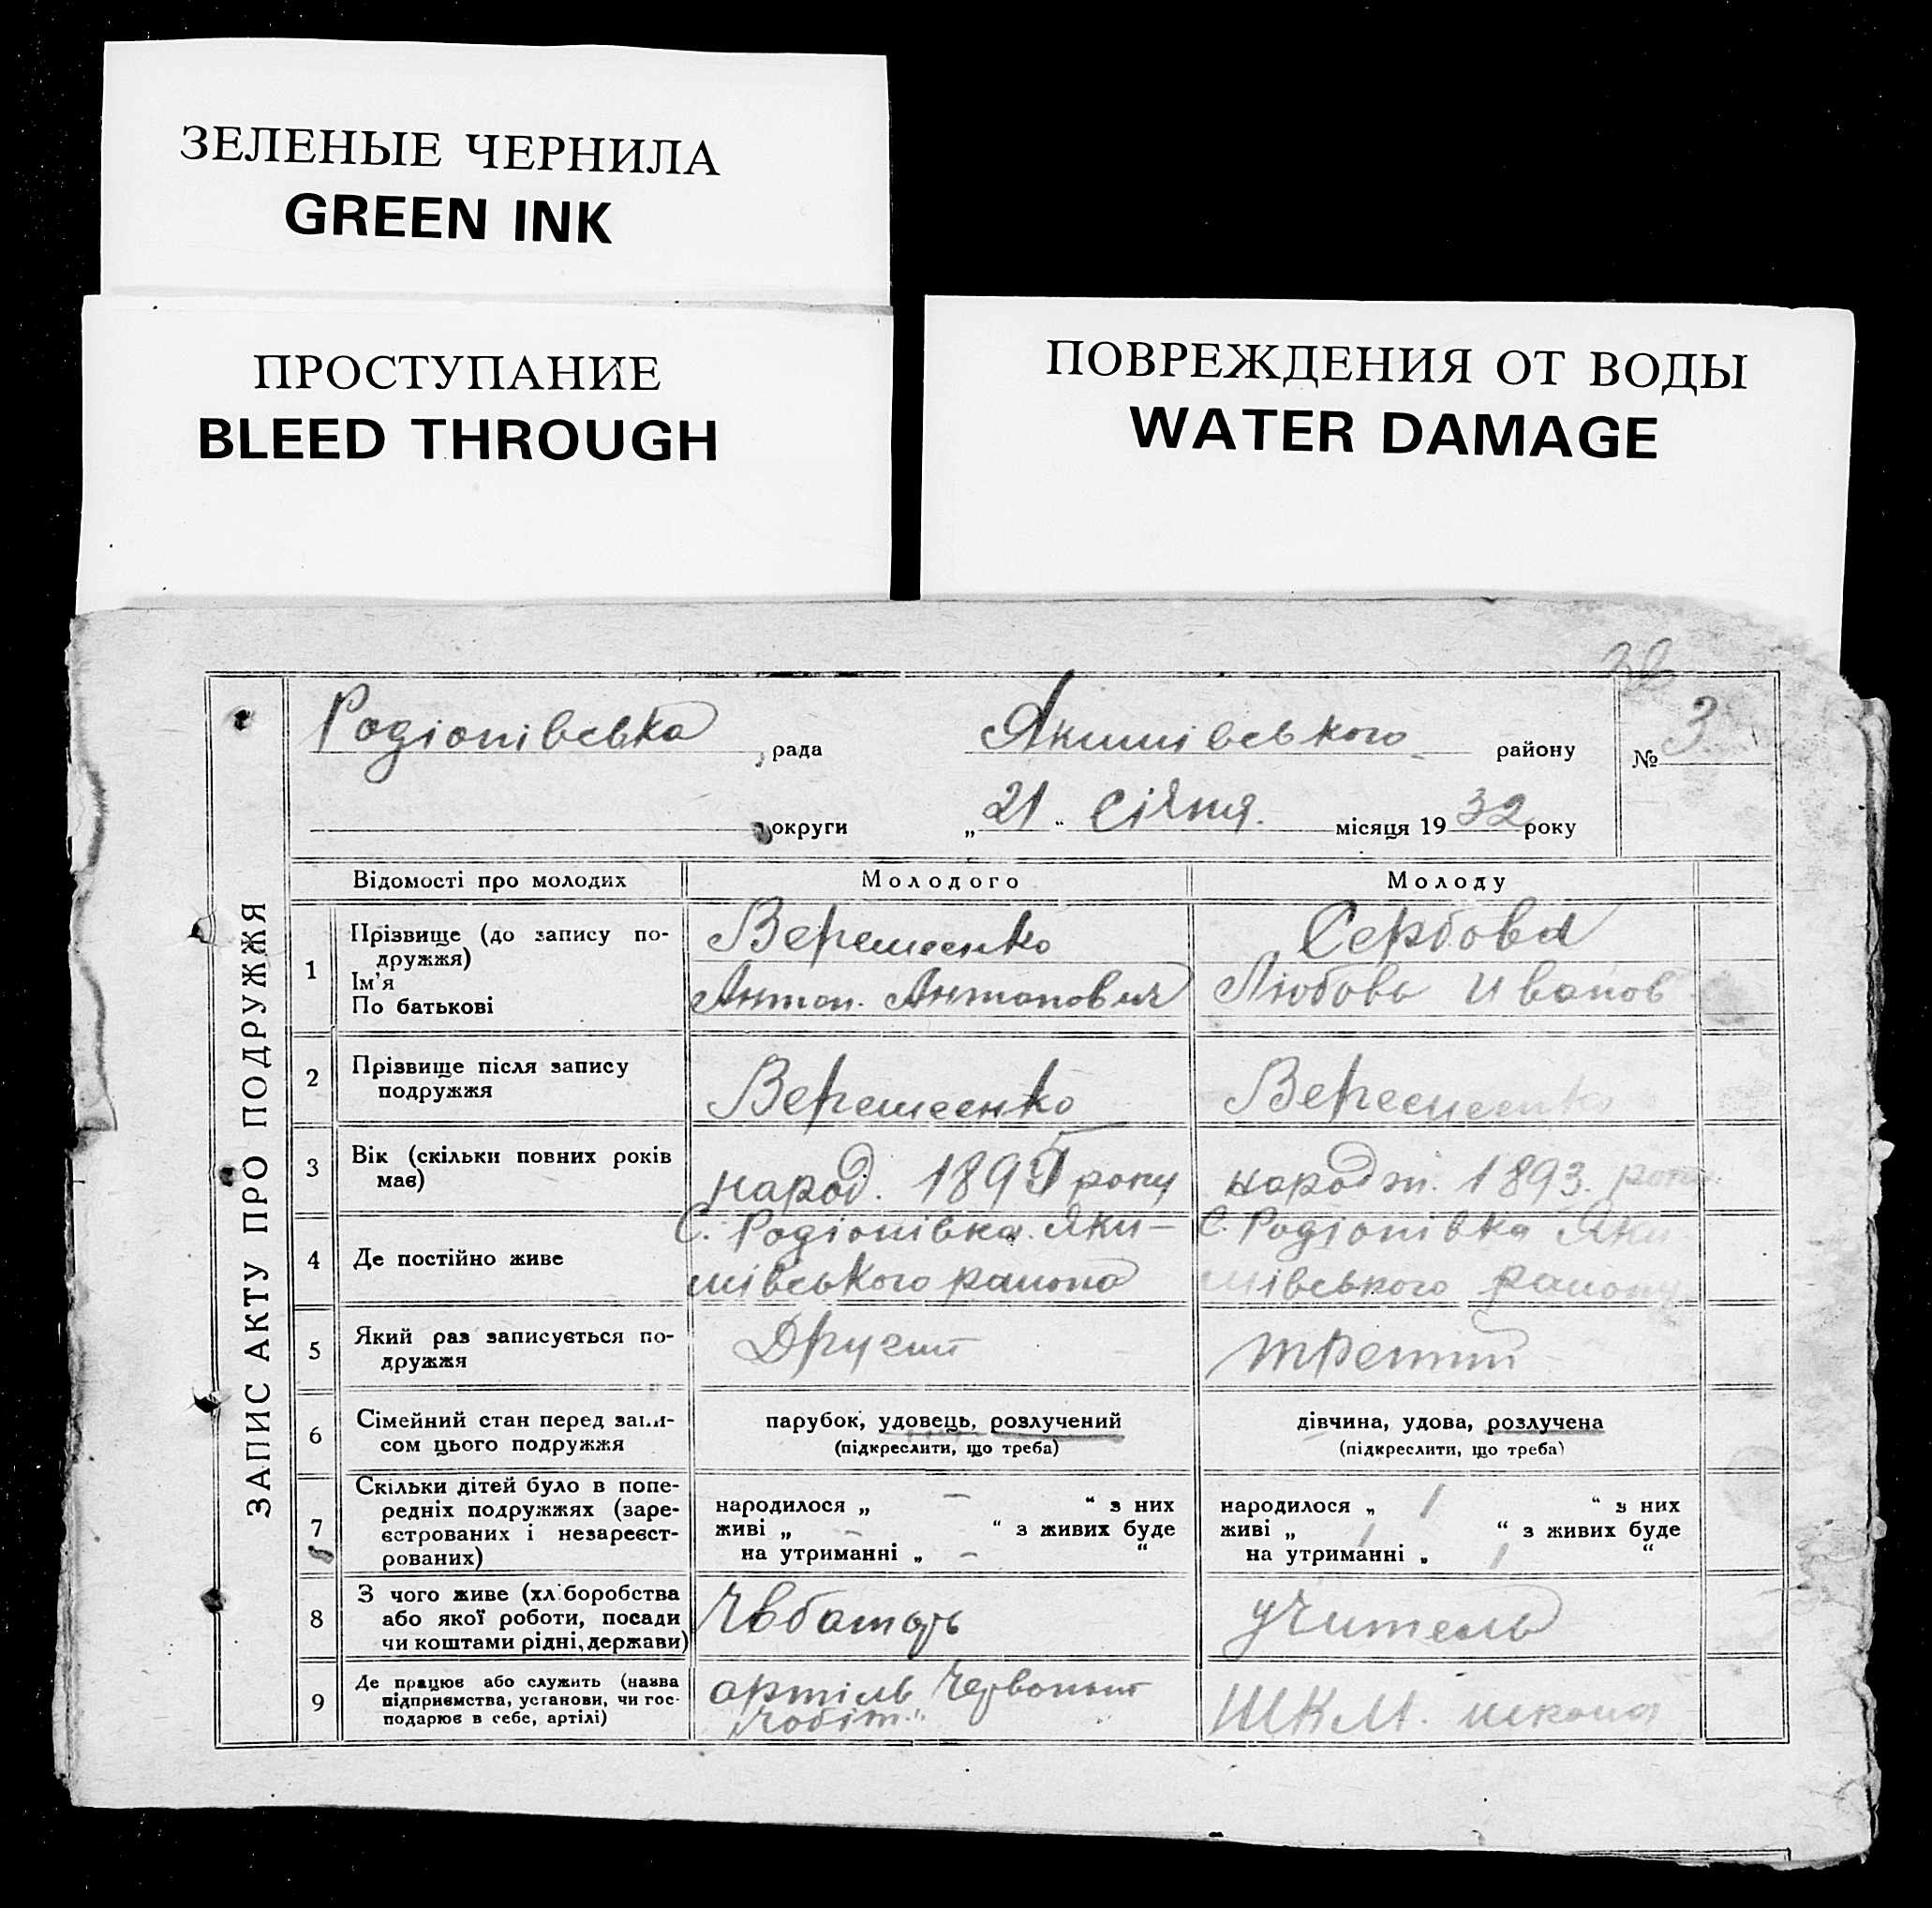 ЗЕЛЕНЫЕ ЧЕРНИЛА
GREEN INK
ПРОСТУПАНИЕ
BLEED THROUGH
ПОВРЕЖДЕНИЯ ОТ ВОДЫ
WATER DAMAGE
ЗАПИС АКТУ ПРО ПОДРУЖЖЯ
Родіонівська рада Якимівського району № 3
округи „21“ Січня. місяця 1932 року
Відомості про молодих Молодого Молоду
1 Прізвище (до запису подружжя) Верещеенко Сербова
Ім'я Антон. Антонович Любовь Иванов
По батькові
2 Прізвище після запису подружжя Верещеенко Верещеенко
3 Вік (скільки повних років має) народ. 189 року народж. 1893. року
4 Де постійно живе С. Родіонівка Яки- С. Родіонівка Яки
мівського района мівського району
5 Який раз записується подружжя Другий третий
6 Сімейний стан перед записом цього подружжя парубок, удовець, розлучений дівчина, удова, розлучена
(підкреслити, що треба) (підкреслити, що треба)
7 Скільки дітей було в попередніх подружжях (зареєстрованих і незареєстрованих) народилося „ – “ з них народилося „ 1 “ з них
живі „ – “ з живих буде живі „ 1 “ з живих буде
на утриманні „ – “ на утриманні „ 1 “
8 З чого живе (хліборобства або якої роботи, посади чи коштами рідні, держави) учитель
9 Де працює або служить (назва підприємства, установи, чи господарює в себе, артілі) артіль ШКМ. школа